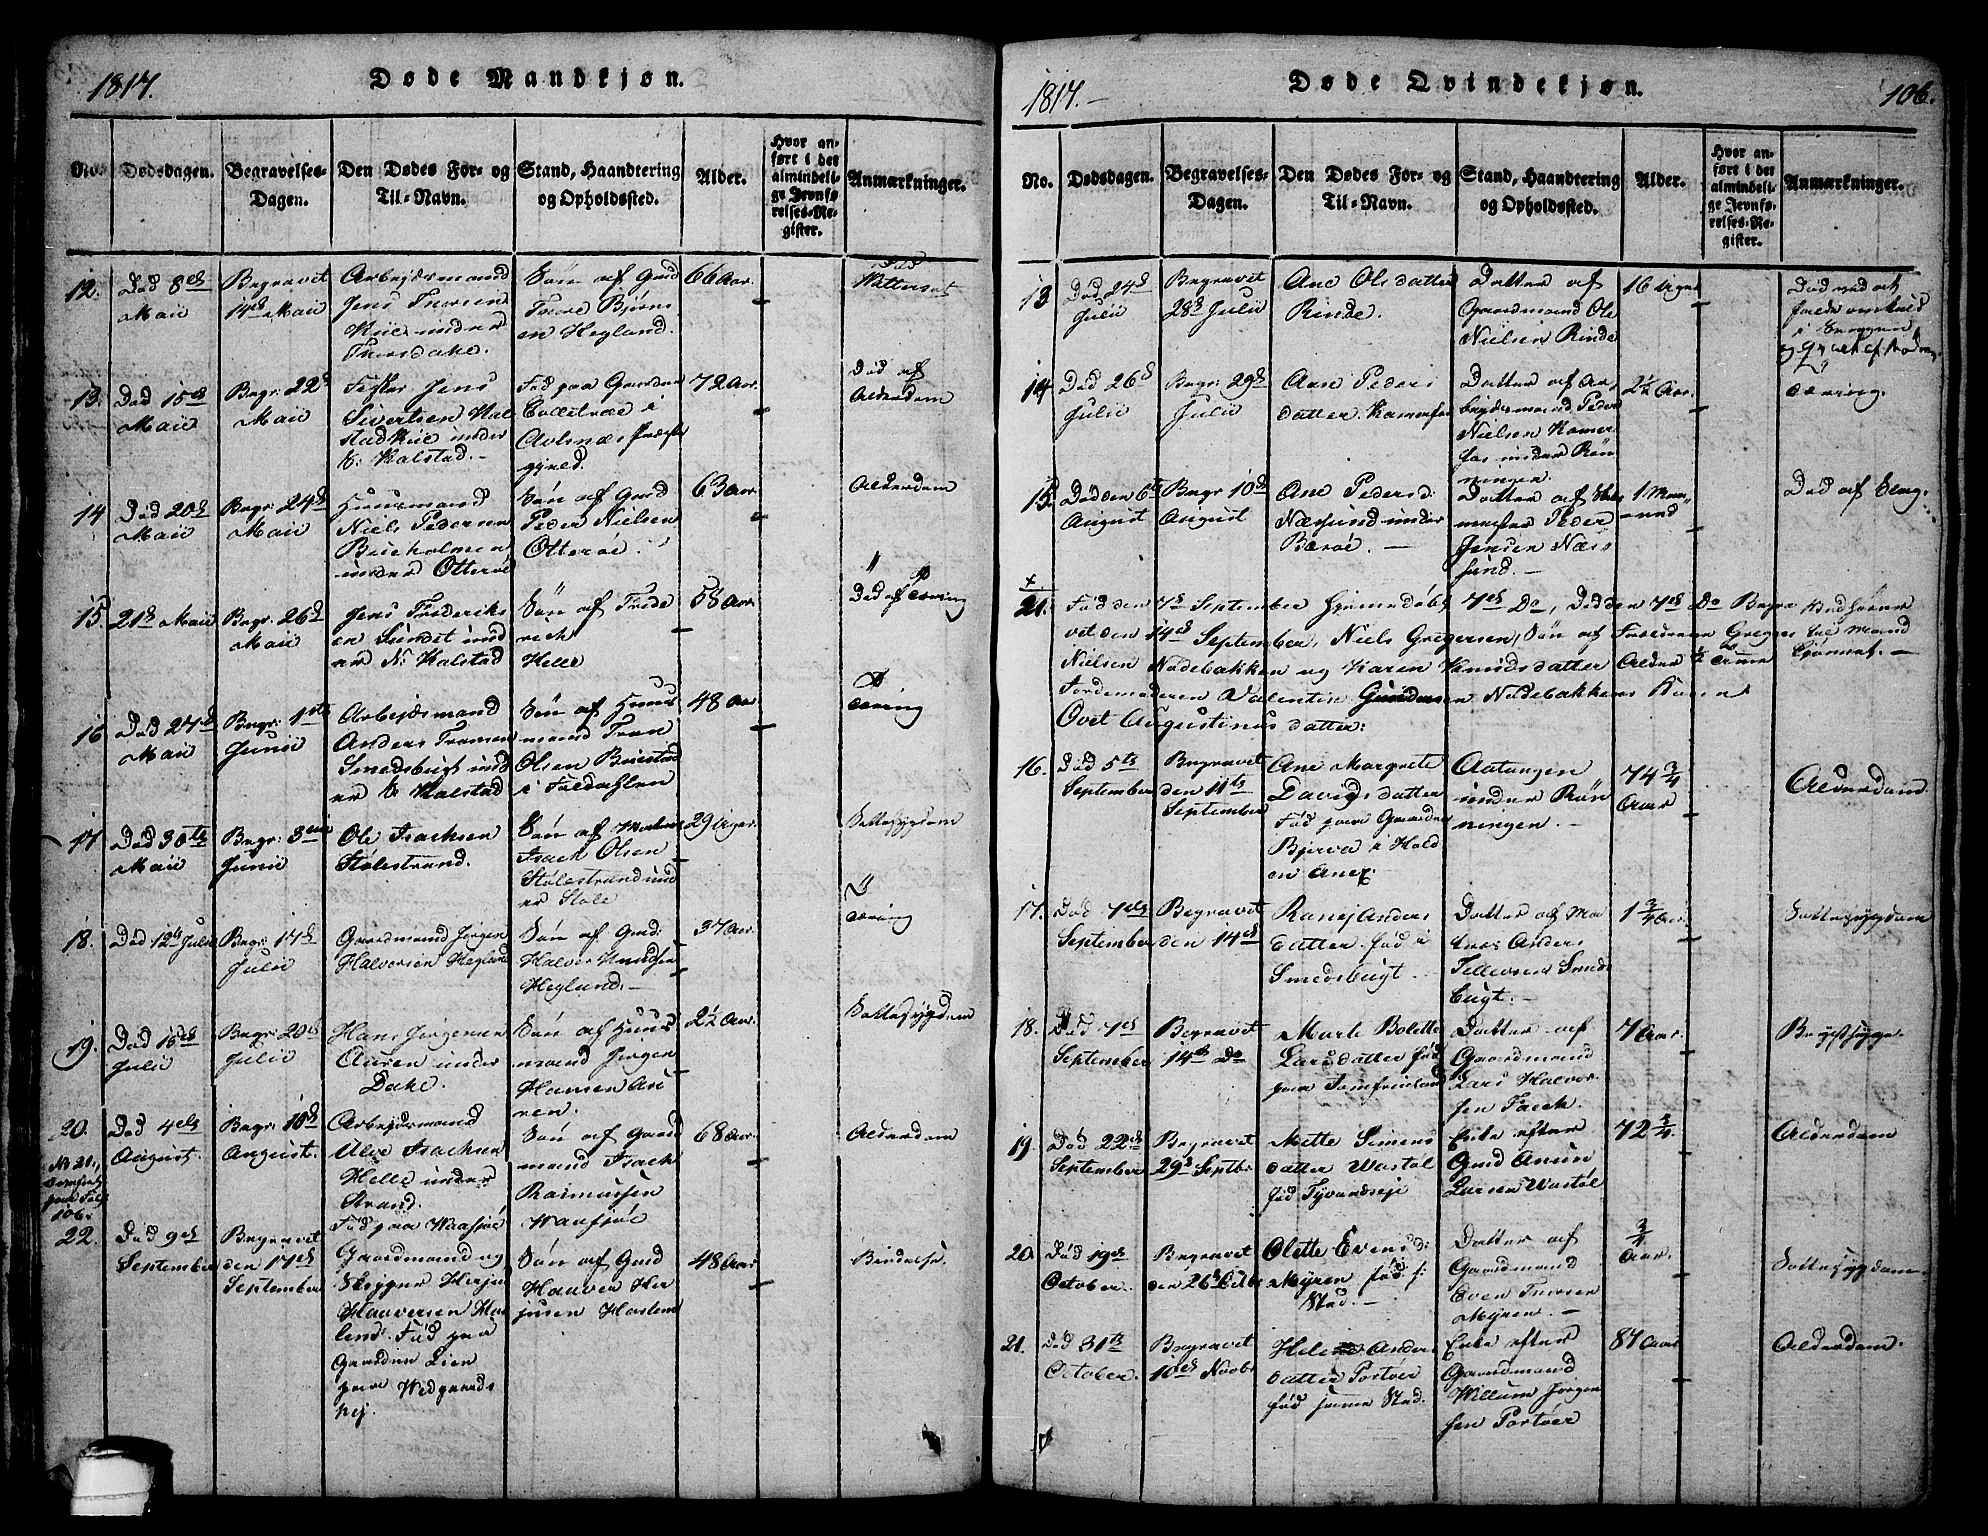 1817.
Døde Mandkjøn.
No.
Dødsdagen.
Begravelses-
Dagen.
Den Dødes For- og
Til-Navn.
Stand, Haandtering
og Opholdssted.
Alder.
Hvor an-
ført i det
almindeli-
ge Jevnfø-
relses-Re-
gister.
Anmærkninger.
12.
Død 8de
Maii
Begravet
14de Maii
Arbejdsmand
Jens Thorsen
under
Søn af Gmd
Tore Bjørn
sen Hegland.
66 Aar.
13.
Død 15de
Maii
Begr: 22de
Maii
Jens
Sivertsen Kal
stadkile under
Y: Kalstad.
Fød paa Gaarden
i
72 Aar.
Død af
Alderdom
14
Død 20de
Maii
Begr: 24de
Maii
Huusmand
Niels Pedersen
Brieholmen
under Otterøe
Søn af Gmd
Peder Nielsen
Otterøe.
63 Aar
Alderdom
15.
21de Maii
Begr: 26de
Maii
Jens Frederiks
en Sundet und
er N: Kalstad
Søn af Frede
rich
Helle
58 Aar.
Død af Tæring
16
Død 27de
Maii
Begr: 1ste
Junii
Arbejdsmand
Anders Tronsen
Smedsbugt und
er Y Kalstad
Søn af Huus
mand Tron
Olsen
i
48 Aar
Tæring
17
Død 30te
Maii
Begr: 3die
Junii
Ole Isachsen
Stølestrand.
Søn af
Isach Olsen
Stølestrand und
er Støle
29 Uger.
Sottesygdom
18.
Død 12te Julii
Begr: 17de
Julii
Gaardmand Jørgen
Halversen Hegland
Søn af Gmd:
Halver Knudsen
Hegland.
37 Aar.
Tæring
19.
Død 15de
Julii
Begr: 20de
Julii
Hans Jørgensen
Auren under
Dahle.
Søn af Huus
mand Jørgen
Hansen Au
ren.
2½ Aar.
Sottesygdom
20.
Død 4de
August.
Begr: 10de
August.
Arbejdsmand
Isachsen
Helle under
Strand.
Fød paa Waasjøe
Søn af Gaard
mand Isach
Rasmussen
Waasjøe
68 Aar.
Alderdom
No 21.
paa Fol:
106.
22.
Død 9de
September
Begravet
den 17de
September
Gaardmand og
Skipper Herju
Haaversen Has
lene. Fød paa
Gaarden Lien
paa Wedgaards
hej.
Søn af Gmd
Haaver Her
jusen Haslene
48 Aar
1817.
Døde Qvindekjøn.
106.
No.
Dødsdagen.
Begravelses-
Dagen.
Den Dødes For- og
Til-Navn.
Stand, Haandtering
og Opholdssted.
Alder.
Hvor an-
ført i det
almindeli-
ge Jevnfø-
relses-Re-
gister.
Anmærkninger.
13
Død 24de
Julii
Begravet
28de Julii
Ane Olsdatter
Rinde.
Datter af
Gaardmand Ole
Nielsen Rinde
16 Uger
Død ved at
14
Død 26de
Julii
Begr: 29de
Julii
Ane Peders
datter
Datter af Ar
bejdsmand Peder
Nielsen
under Røn
ningen.
2½ Aar.
Tæring.
15.
Død den 6te
August
Begr 10de
August
Ane Pedersd:
Næssund under
Barøe.
Datter af
Peder
Jensen Næs
sund.
1 Maa
ned
Død af Slag.
21.
Fød den 7de September Hjemmedøbt 7de Do, Død den 7de Do Begra
vet den 14de September, Niels Gregersen, Søn af Gregers
Nielsen Nødebakken og Karen Knudsdatter Alder ½ Time
Jordemoderen Valentin Gundersen Nødebakkens Kone
Augustinusdatter:
16.
Død 5te
September
Begravet
den 11te
September
Ane Margrete
Davidsdatter
Fød paa Gaarden
Bjerva i Hold
en Anex.
Aatangen
under Røn
ningen.
74 3/4
Aar
Alderdom
17.
Død 7de
September
Begravet
den 14de
Ranej Anders
datter fød i
Smedsbugt
Datter af Ma
tros Anders
Tellevsen Smeds
bugt.
1 3/4 Aar.
Sottesygdom
18.
Død 7de
September
Begravet
14de Do
Marte Bolette
Larsdatter fød
paa
Datter af
Gaardmand
Lars Halvor
sen
7 Aar.
Brystsyge
19
Død 22de
September
Begravet
29de Septbr
Mette Simens
datter Wastøl
fød
Enke efter
Gmd
Larsen Wastøl
72 3/4.
Alderdom
20.
Død 19de
October.
Begravet
den 26de Octbr
Olette Evensd:
Myren fød s:
Stad.
Datter af
Gaardmand
Even Thorsen
Myren.
3/4
Aar.
Sottesygdom.
21.
Død 31te
October.
Begravet
10de Novbr
Helene Anders
datter Portøer
fød samme Stad.
Enke efter
Gaardmand
Willum Jørgen
sen Portøer
87 Aar
Alderdom.